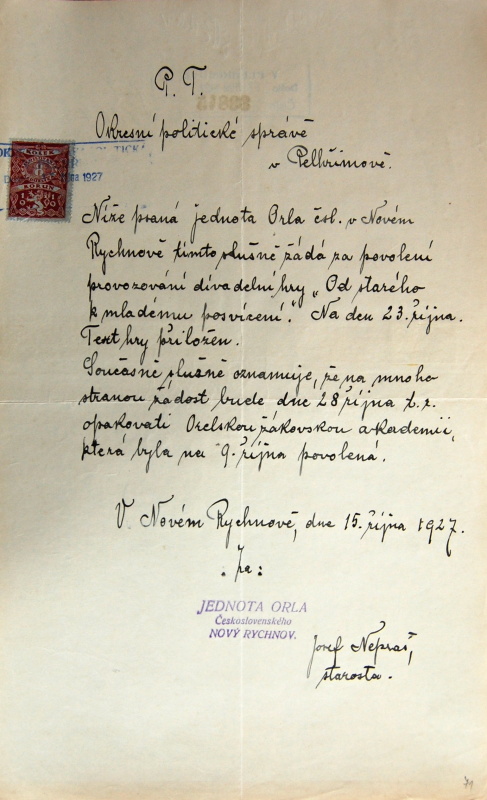 P. T.
Okresní politické správě
v Pelhřimově.
KOLEK
KORUN
1927
Níže psaná jednota Orla čsl. v Novém
Rychnově tímto slušně žádá za povolení
provozování divadelní hry „Od starého
k mladému posvícení." Na den 23. října.
Text hry přiložen.
Současně slušně oznamuje, že na mnoho
stranou žádost bude dne 28 října t. r.
opakovati Orelskou žákovskou akademii,
která byla na 9. října povolená.
V Novém Rychnově, dne 15. října 1927.
Za:
JEDNOTA ORLA
Československého
NOVÝ RYCHNOV.
Josef Nepraš,
starosta.
71